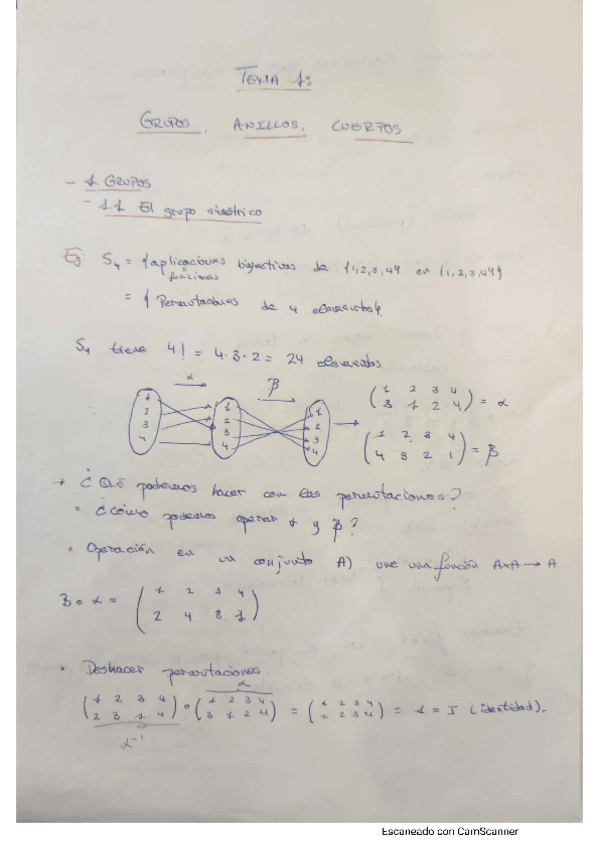 TEMA 1:
GRUPOS, ANILLOS, CUERPOS
- 1 GRUPOS
- 1.1 El grupo simétrico
Ej: S₄ = {aplicaciones biyectivas de {1,2,3,4} en {1,2,3,4}}
funciones
= {Permutaciones de 4 elementos}
S₄ tiene 4! = 4·3·2 = 24 elementos
α β
1 1 1
2 2
3 3 3
4 4 4
(1 2 3 4
3 1 2 4) = α
(1 2 3 4
4 3 2 1) = β
→ ¿Qué podemos hacer con las permutaciones?
• ¿Cómo podemos operar α y β?
• Operación en un conjunto A) una función A×A → A
β∘α = (1 2 3 4
2 4 3 1)
• Deshacer permutaciones
α
(1 2 3 4 ∘ (1 2 3 4 = (1 2 3 4 = 1 = I (identidad).
2 3 1 4) 3 1 2 4) 1 2 3 4)
α⁻¹
Escaneado con CamScanner